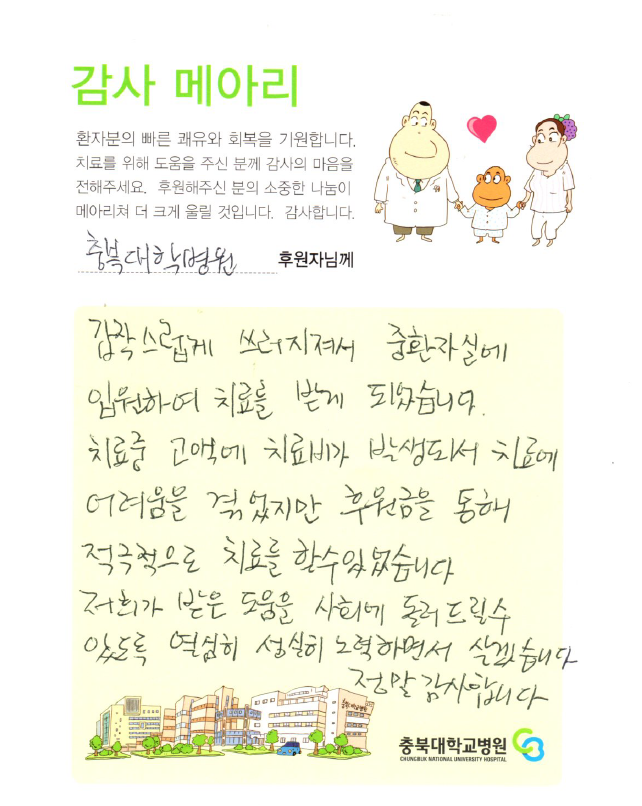 감사 메아리
환자분의 빠른 쾌유와 회복을 기원합니다.
치료를 위해 도움을 주신 분께 감사의 마음을
전해주세요. 후원해주신 분의 소중한 나눔이
메아리쳐 더 크게 울릴 것입니다. 감사합니다.
충북대학병원 후원자님께
갑작스럽게 쓰러지져서 중환자실에
입원하여 치료를 받게 되었습니다.
치료중 고액에 치료비가 발생되서 치료에
어려움을 겪었지만 후원금을 통해
적극적으로 치료를 할수있었습니다
저희가 받은 도움을 사회에 돌려드릴수
있도록 열심히 성실히 노력하면서 살겠습니다
정말 감사합니다
충북대학교병원
CHUNGBUK NATIONAL UNIVERSITY HOSPITAL